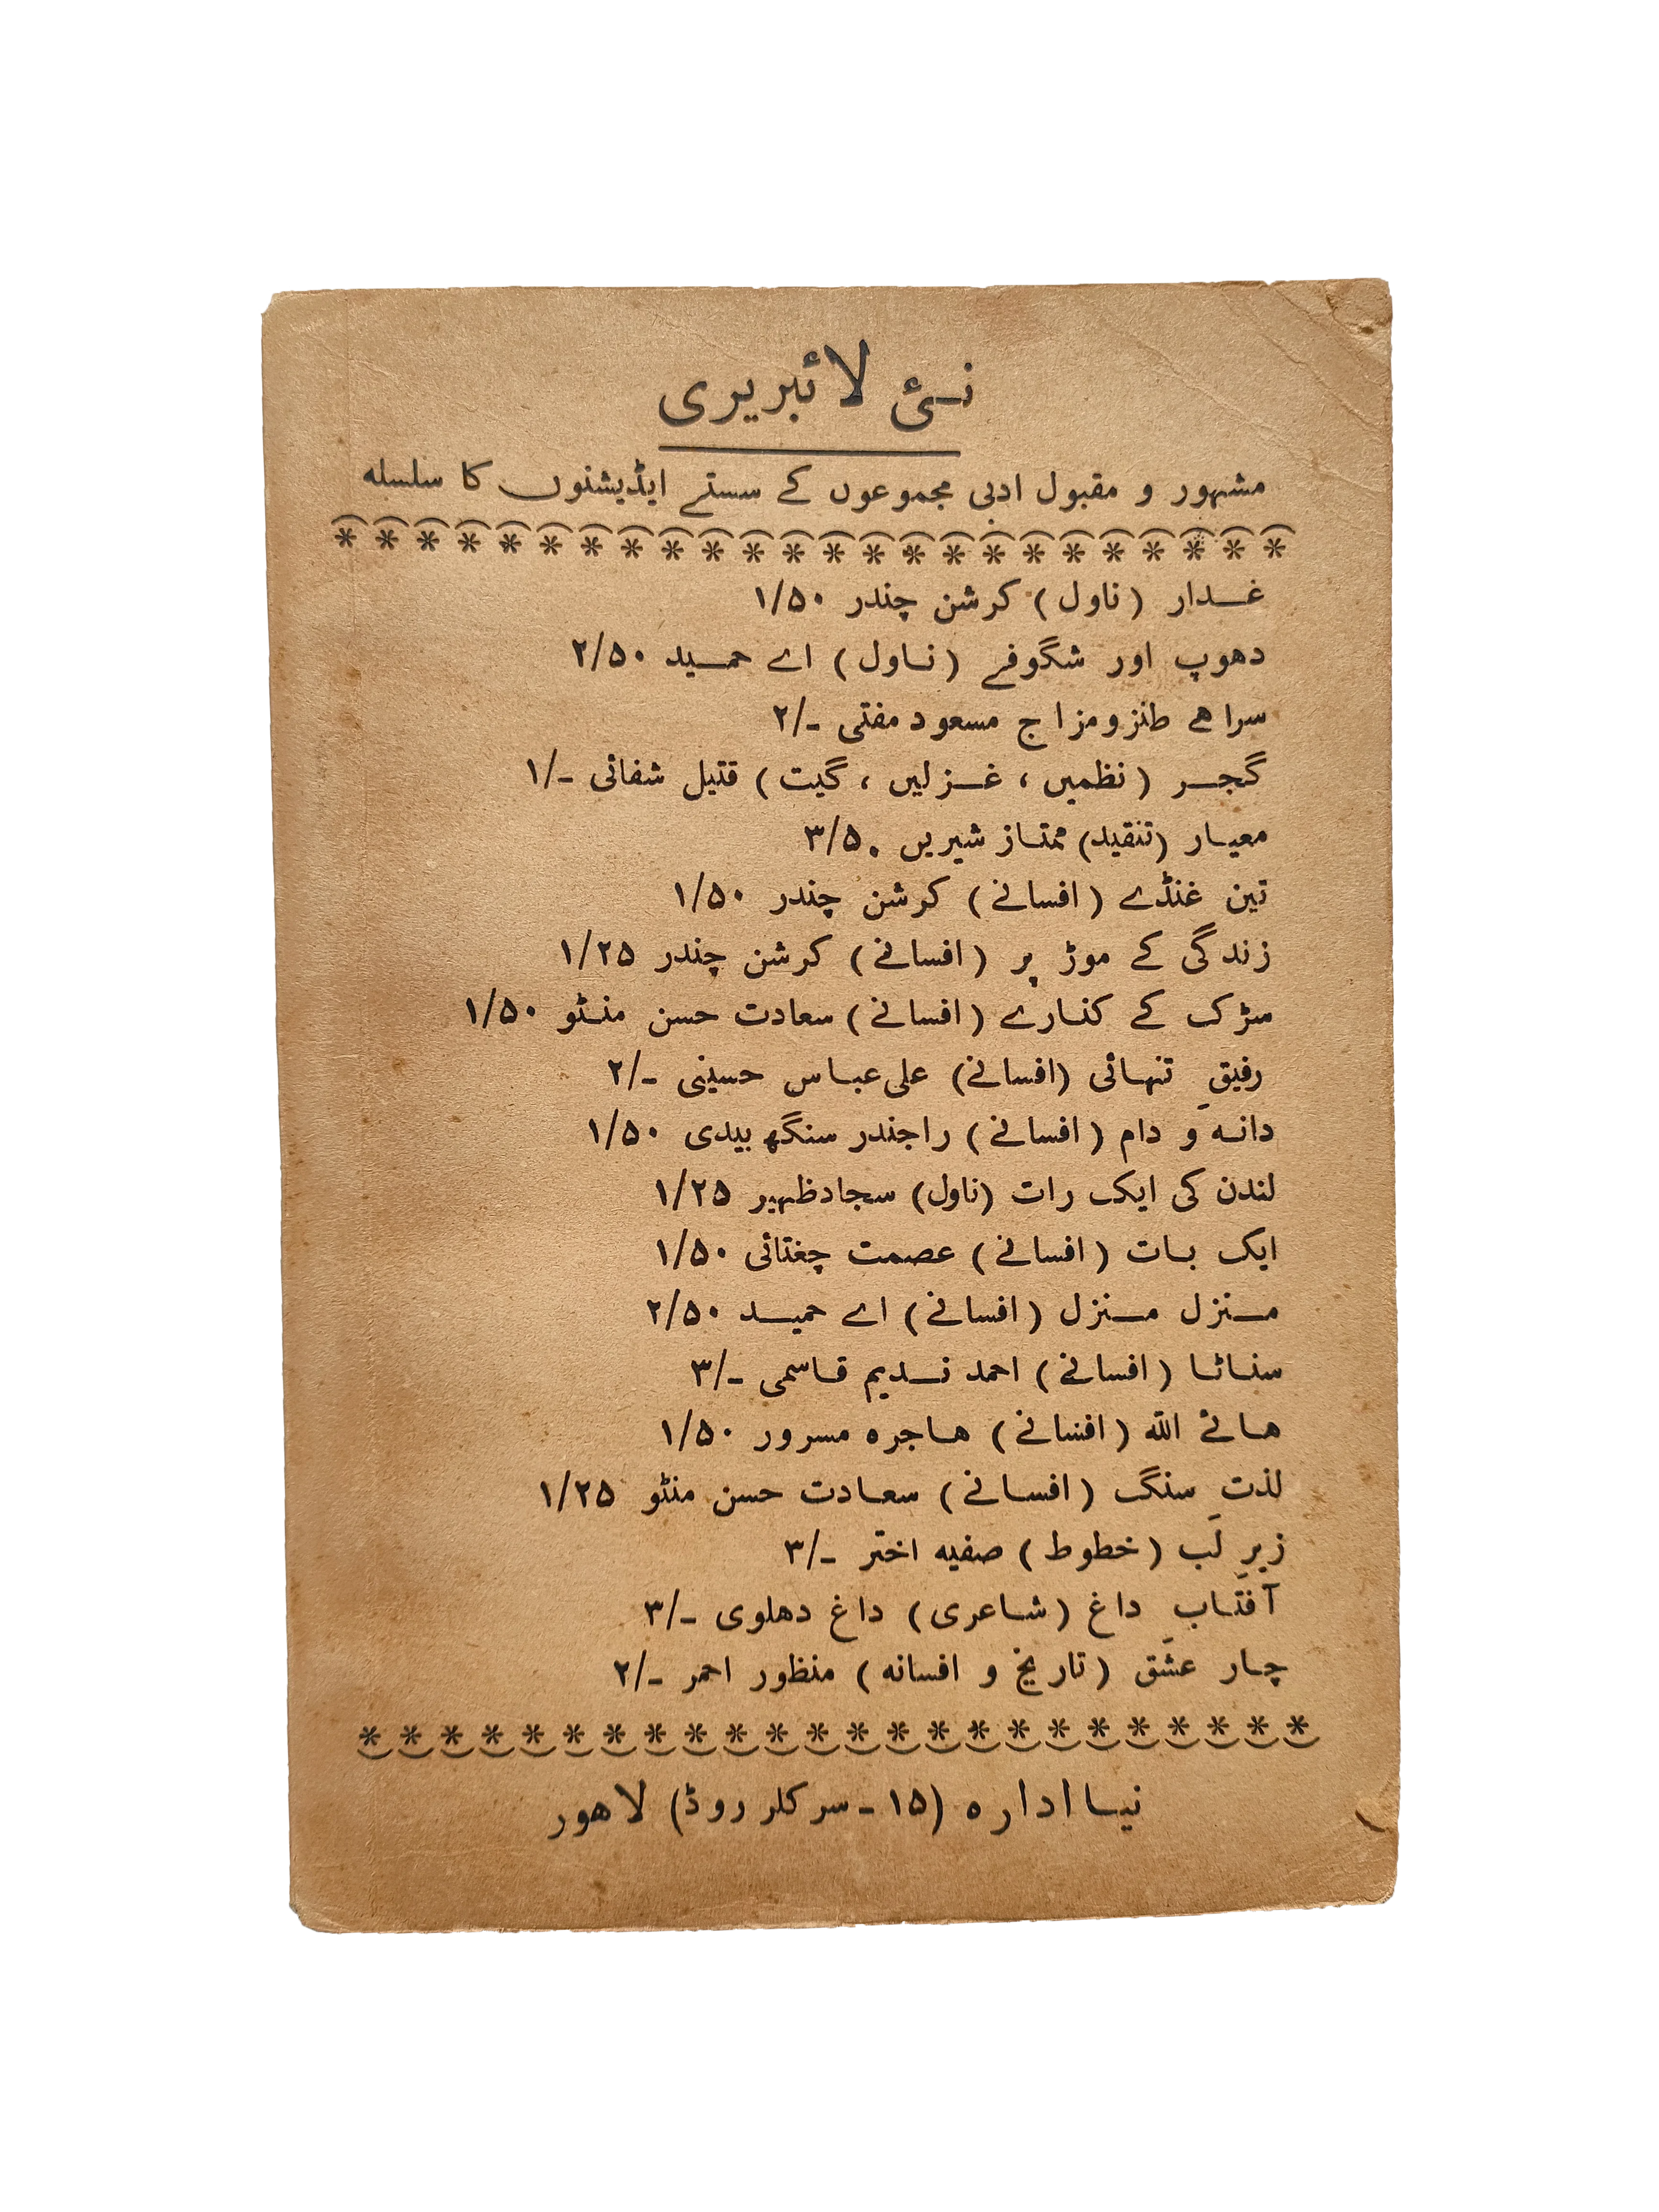 نئی لائبریری
مشہور و مقبول ادبی مجموعوں کے سستے ایڈیشنوں کا سلسلہ
غدار (ناول) کرشن چندر ۱/۵۰
دھوپ اور شگوفے (ناول) اے حمید ۲/۵۰
سراھے طنزومزاج مسعود مفتی ۲/-
گجر (نظمیں ، غزلیں ، گیت) قتیل شفائی ۱/-
معیار (تنقید) ممتاز شیریں ۳/۵۰
تین غنڈے (افسانے) کرشن چندر ۱/۵۰
زندگی کے موڑ پر (افسانے) کرشن چندر ۱/۲۵
سڑک کے کنارے (افسانے) سعادت حسن منٹو ۱/۵۰
رفیقِ تنہائی (افسانے) علی عباس حسینی ۲/-
دانہ و دام (افسانے) راجندر سنگھ بیدی ۱/۵۰
لندن کی ایک رات (ناول) سجادظہیر ۱/۲۵
ایک بات (افسانے) عصمت چغتائی ۱/۵۰
منزل منزل (افسانے) اے حمید ۲/۵۰
سناٹا (افسانے) احمد ندیم قاسمی ۳/-
ھائے اللہ (افسانے) ھاجرہ مسرور ۱/۵۰
لذتِ سنگ (افسانے) سعادت حسن منٹو ۱/۲۵
زیرِ لَب (خطوط) صفیہ اختر ۳/-
آفتابِ داغ (شاعری) داغ دھلوی ۳/-
چار عشق (تاریخ و افسانہ) منظور احمر ۲/-
نیا ادارہ (۱۵ - سرکلر روڈ) لاھور